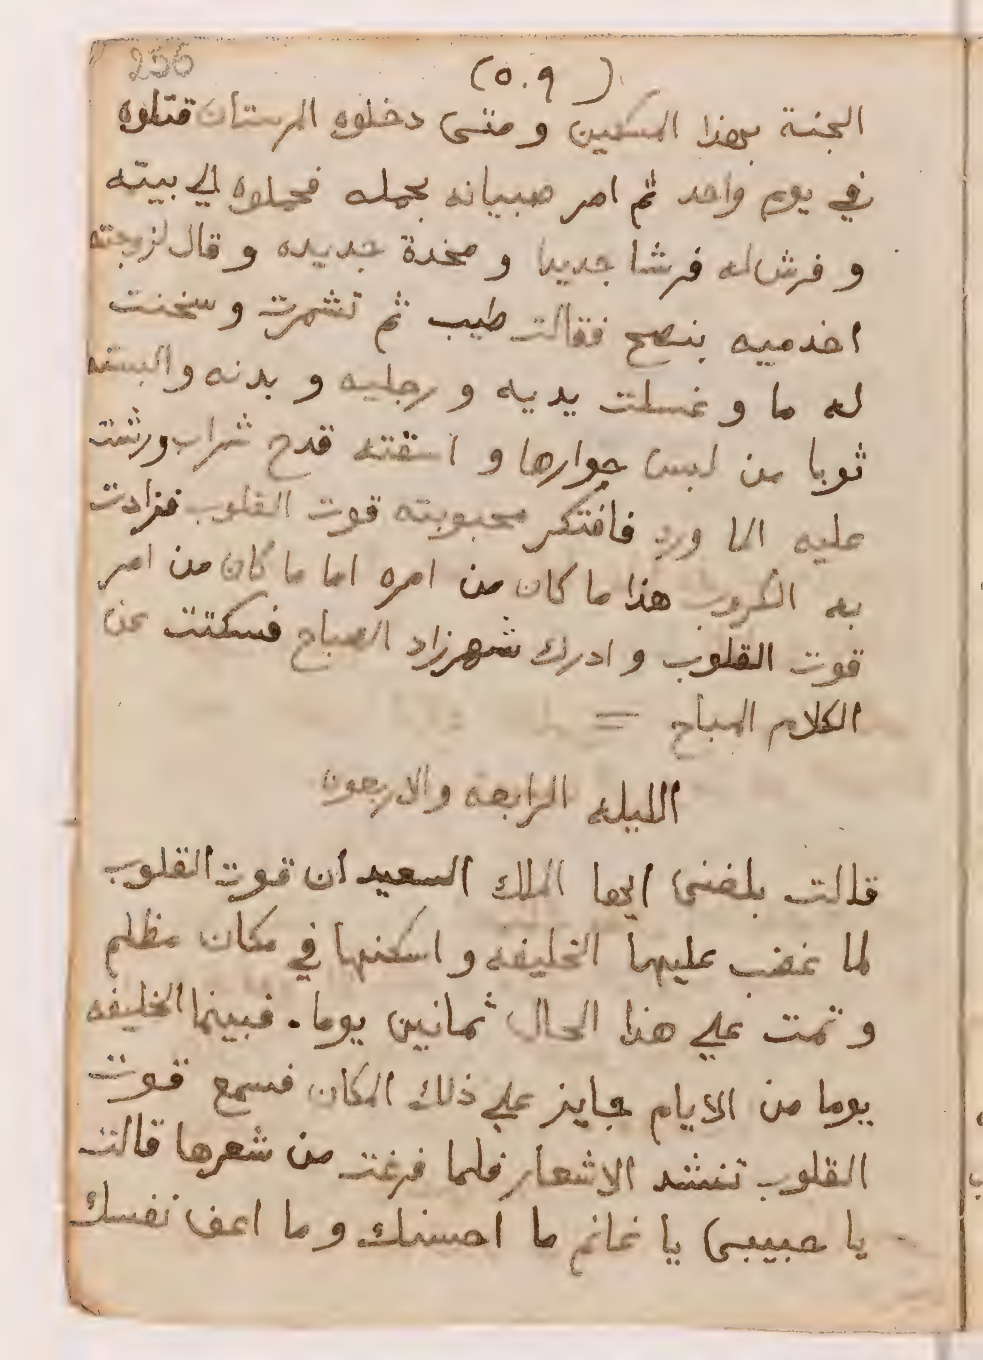 255
(٥٠٩)
الجنة بهذا المسكين و متى دخلوه المرستان قتلوه
في يوم واحد ثم امر صبيانه بحمله فحملوه الي بيته
و فرش له فرشا جديدا و مخدة جديده و قال لزوجته
اخدميه بنصح فقالت طيب ثم تشمرت و سخنت
له ما و غسلت يديه و رجليه و بدنه والبسته
ثوبا من لبس جوارها و اسقته قدح شراب ورشت
عليه الما ورد فافتكر محبوبته قوت القلوب فزادت
به الكروب هذا ما كان من امره اما ما كان من امر
قوت القلوب و ادرك شهرزاد الصباح فسكتت عن
الكلام المباح =
الليله الرابعه والاربعون
قالت بلغنى ايها الملك السعيد ان قوت القلوب
لما غضب عليها الخليفه و اسكنها في مكان مظلم
و تمت علي هذا الحال ثمانين يوما. فبينما الخليفه
يوما من الايام جايز علي ذلك المكان فسمع قوت
القلوب تنشد الاشعار فلما فرغت من شعرها قالت
يا حبيبى يا غانم ما احسنك و ما اعف نفسك